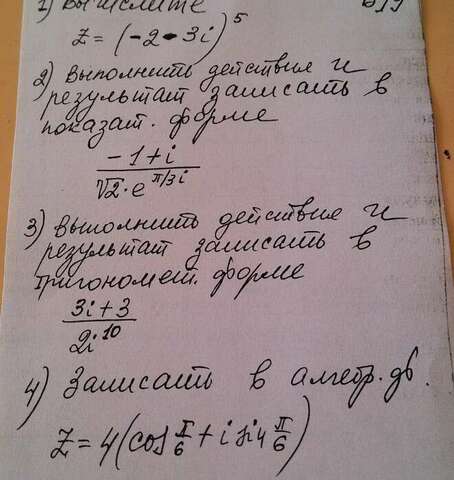 1) Вычислите
z = (-2-3i)^5
2) Выполнить действие и
результат записать в
показат. форме
\frac{-1+i}{\sqrt{2} \cdot e^{π/3 i}}
3) Выполнить действие и
результат записать в
тригономет. форме
\frac{3i+3}{2i^{10}}
4) Записать в алгебр. ф.
z = 4(cos \frac{π}{6} + i sin \frac{π}{6})